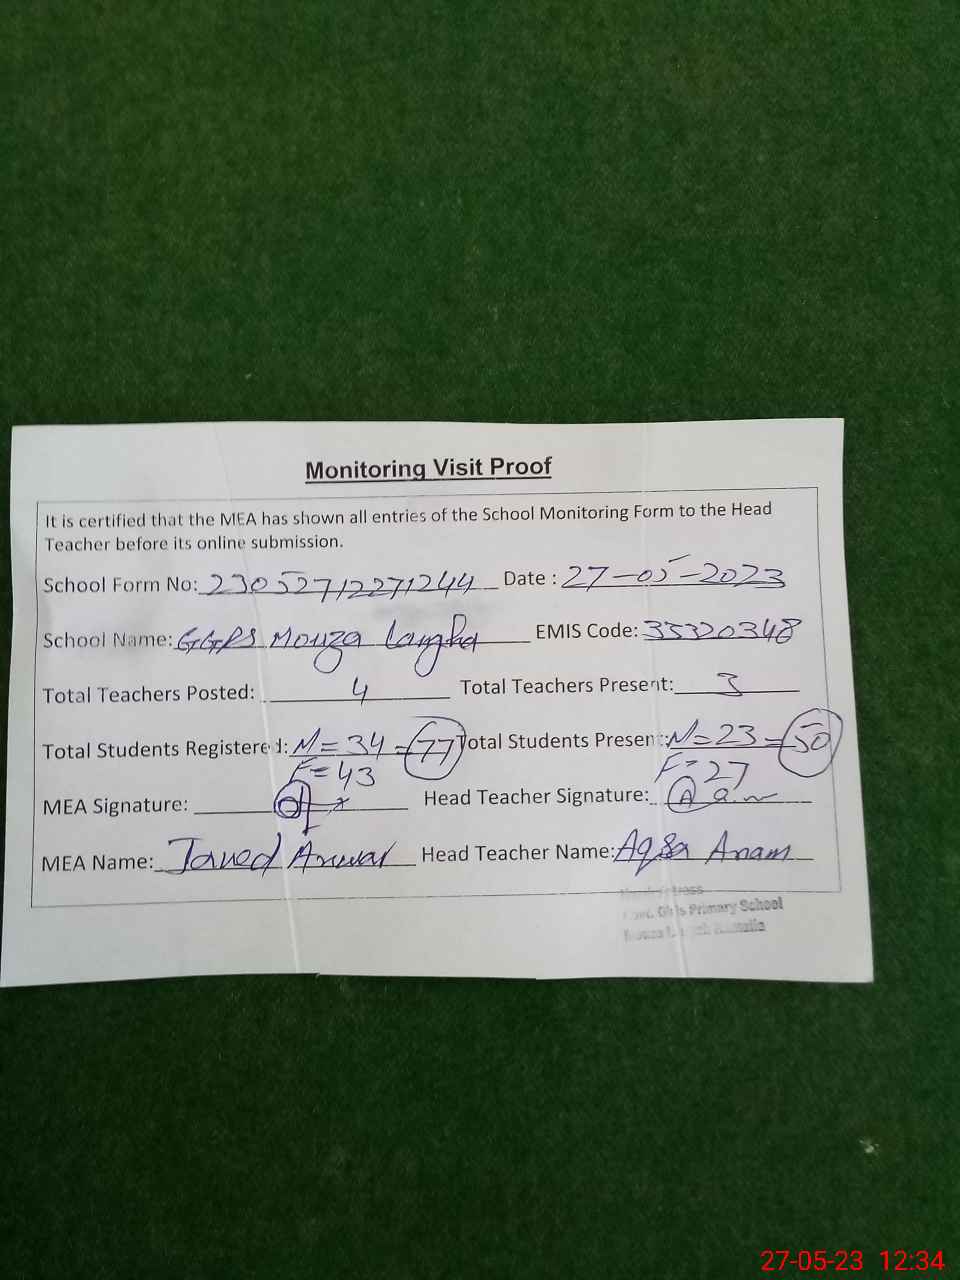 Monitoring Visit Proof
It is certified that the MEA has shown all entries of the School Monitoring Form to the Head
Teacher before its online submission.
School Form No: 23052712271244 Date : 27-05-2023
School Name: GGPS Mouza Langha EMIS Code: 33320348
Total Teachers Posted: 4 Total Teachers Present: 3
Total Students Registered: M=34 = 77 Total Students Present: M=23 = 50
F=43 F=27
MEA Signature: Head Teacher Signature:
MEA Name: Javed Anwar Head Teacher Name: Aqsa Anam
Govt. Girls Primary School
27-05-23 12:34